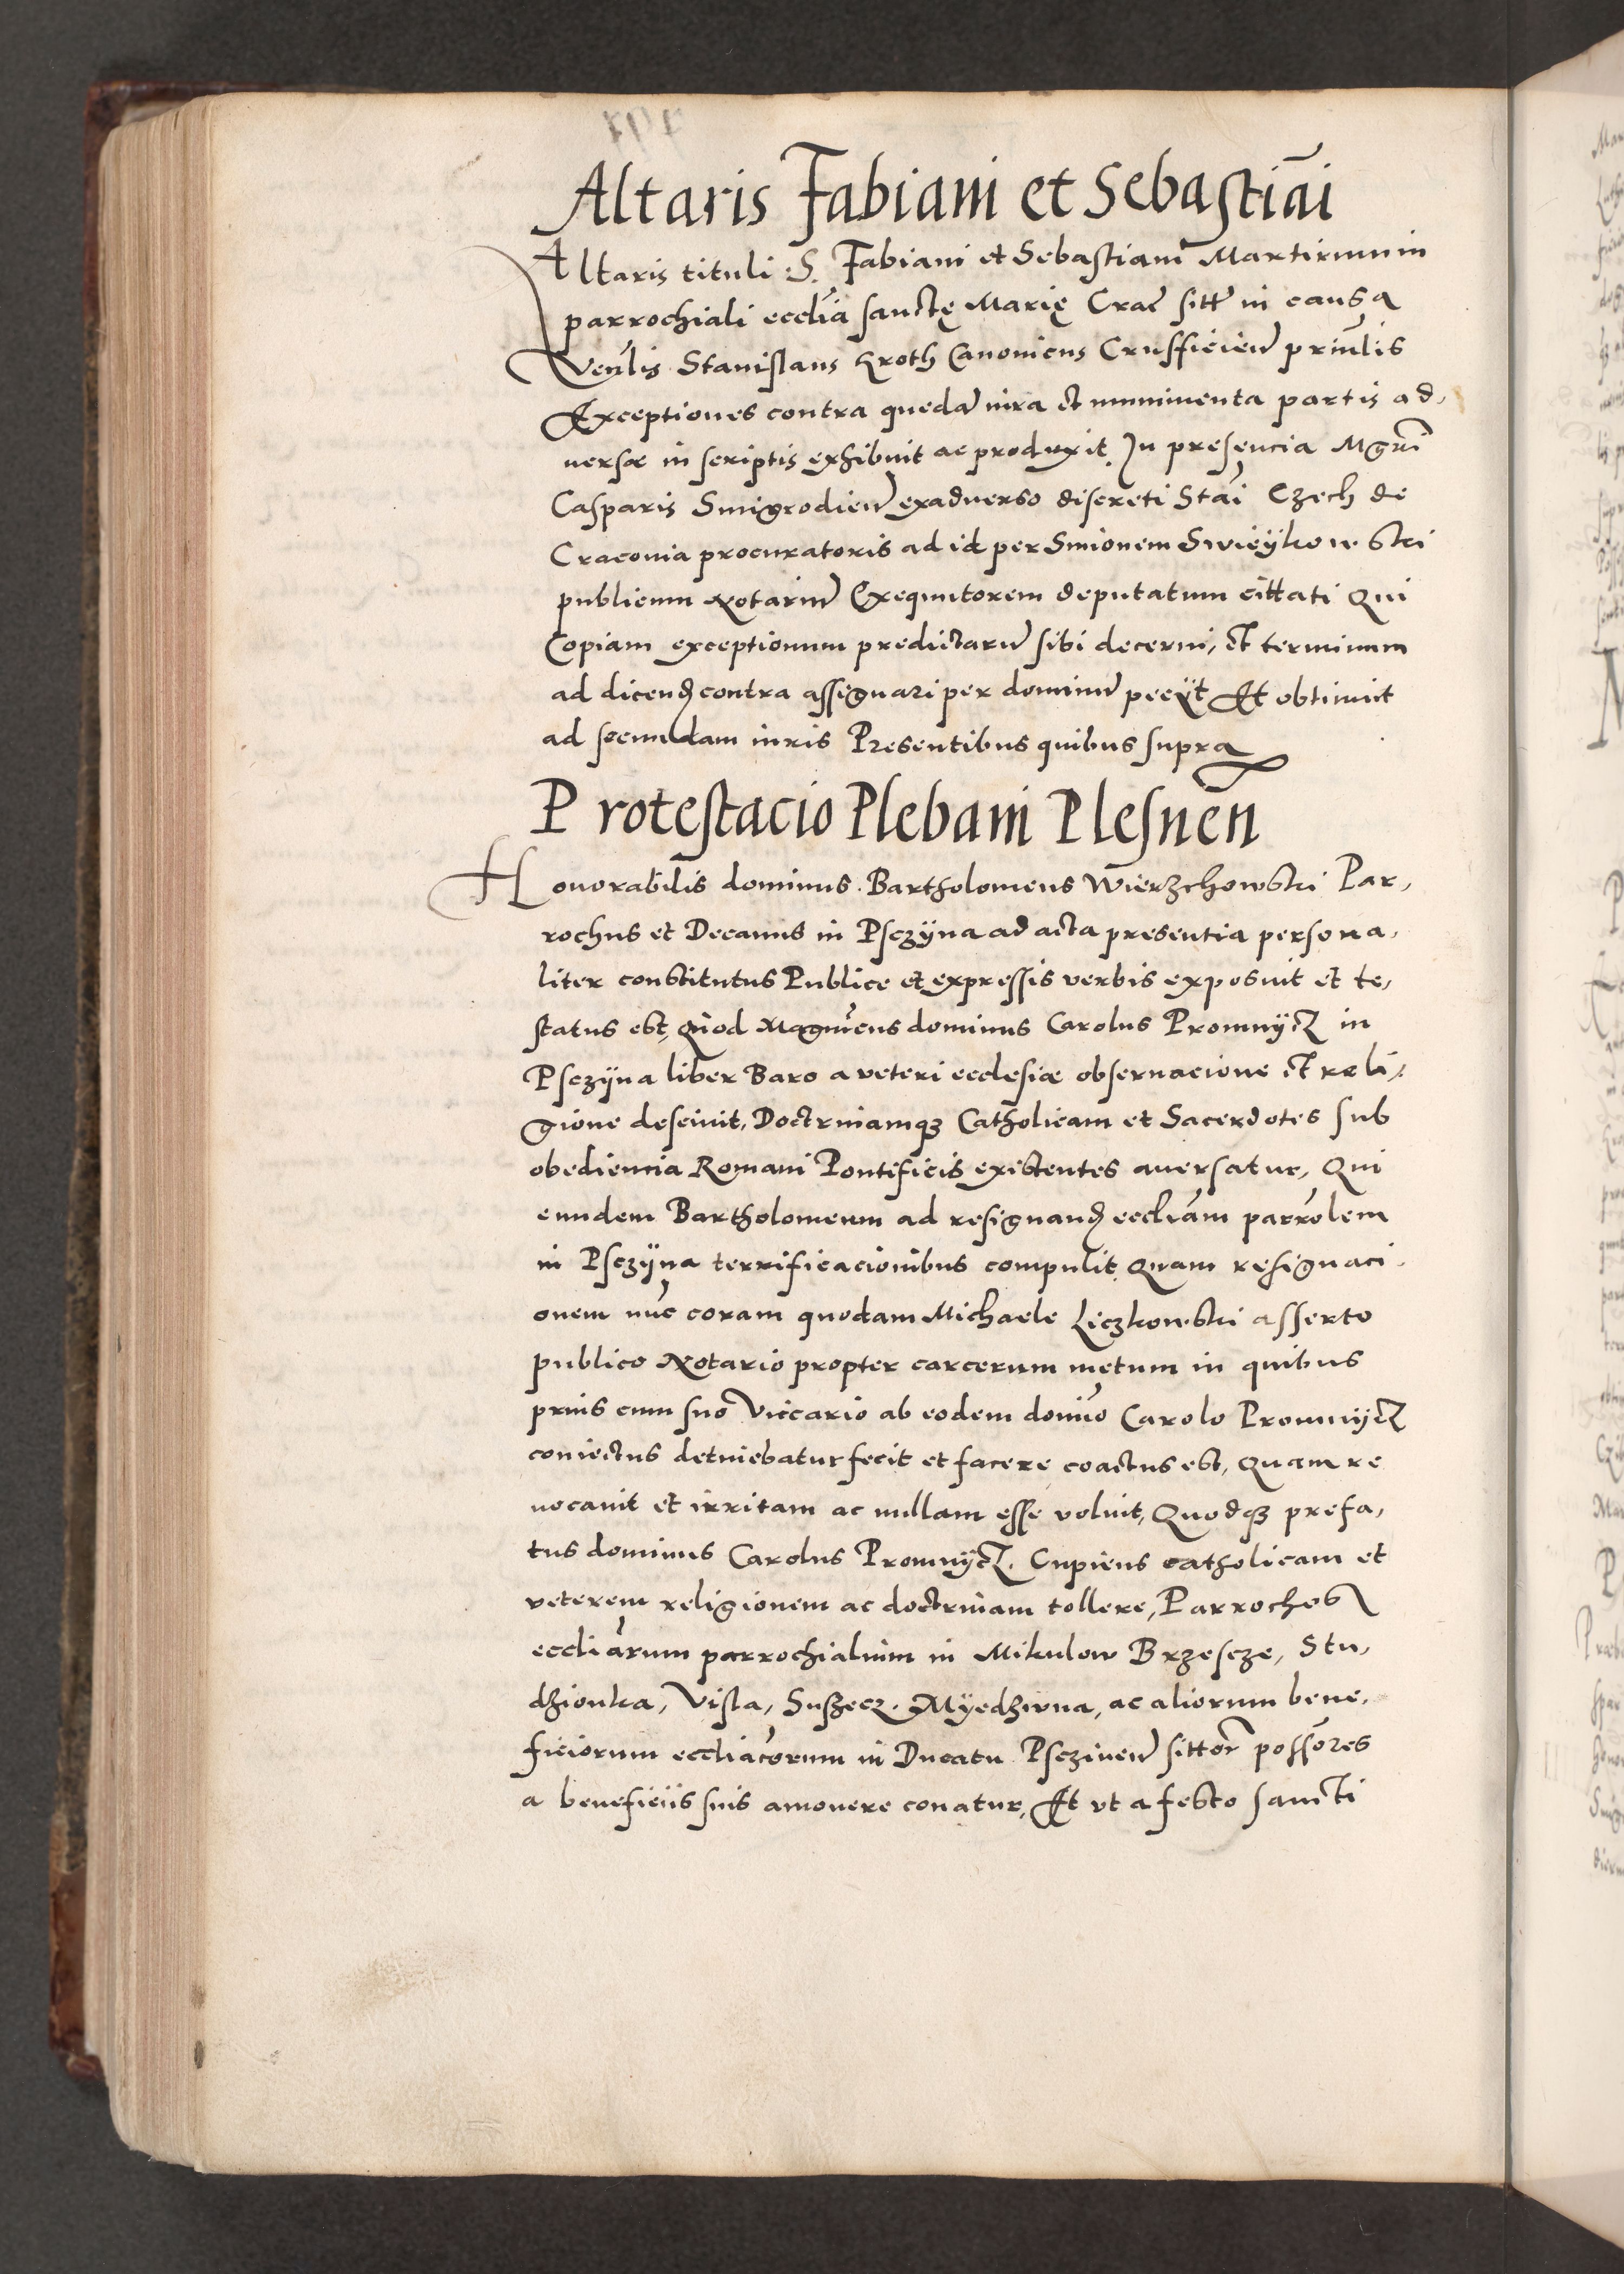 Altaris Fabiani et Sebastiãi
Altaris tituli S. Fabiani et Sebastiani Martirum in
parrochiali ecclĩa sanctę Marię Crac̃ sitt̃ in causa
Veñlis Stanislaus Kroth Canonicus Crusfficien̄ prin̄lis
Exceptiones contra quedā iura et munimenta partis ad,
uersæ in scriptis exhibuit ac produxit. In presencia Mgr̃i
Casparis Smigrodien̄ exaduerso discreti Stãi Czech de
Cracouia procuratoris ad id per Simonem Swieÿkowski
publicum Notariū Exequutorem deputatum citati Qui
Copiam exceptionum predictarū sibi decerni, et terminum
ad dicend̃ contra assignari per dominū peeÿt Et obtinuit
ad secundam iuris Presentibus quibus supra
Protestacio Plebani Plesnen̄
Honorabilis dominus Bartholomeus Wierzchowski Par,
rochus et Decanus in Psczÿna ad acta presentia persona,
liter constitutus Publice et expressis verbis exposuit et te,
status est, Quod Magnif̃cus dominus Carolus Promnÿcz in
Psczÿna liber Baro a veteri ecclesiæ obseruacione et reli,
gione desciuit, Doctrinamqꝫ Catholicam et Sacerdotes sub
obediencia Romani Pontificis existentes auersatur, Qui
eundem Bartholomeum ad resignand̃ ecclĩam parrolem
in Psczÿna terrificacionibus compulit, Quam resignaci,
onem nūc coram quodam Michaele Liczkowski asserto
publico Notario propter carcerum metum in quibus
prius cum suo Viccario ab eodem domĩo Carolo Promnÿcz
coniectus detinebatur fecit et facere coactus est, Quam re
uocauit et irritam ac nullam esse voluit, Quodqꝫ prefa,
tus dominus Carolus Promnÿcz. Cupiens catholicam et
veterem religionem ac doctrinam tollere, Parrochos
ecclĩarum parrochialium in Mikulow Brzescze, Stu,
dzionka, Visla, Suszecz. Myedzwna, ac aliorum bene,
ficiorum eccliãcorum in Ducatu Psczinen̄ sittor̃ poss̃ores
a beneficiis suis amouere conatur, Et vt a festo sancti